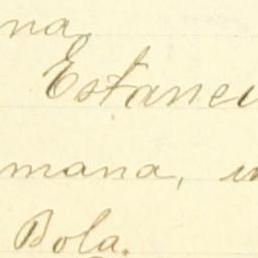 na
Estanci
mana,
Bola.